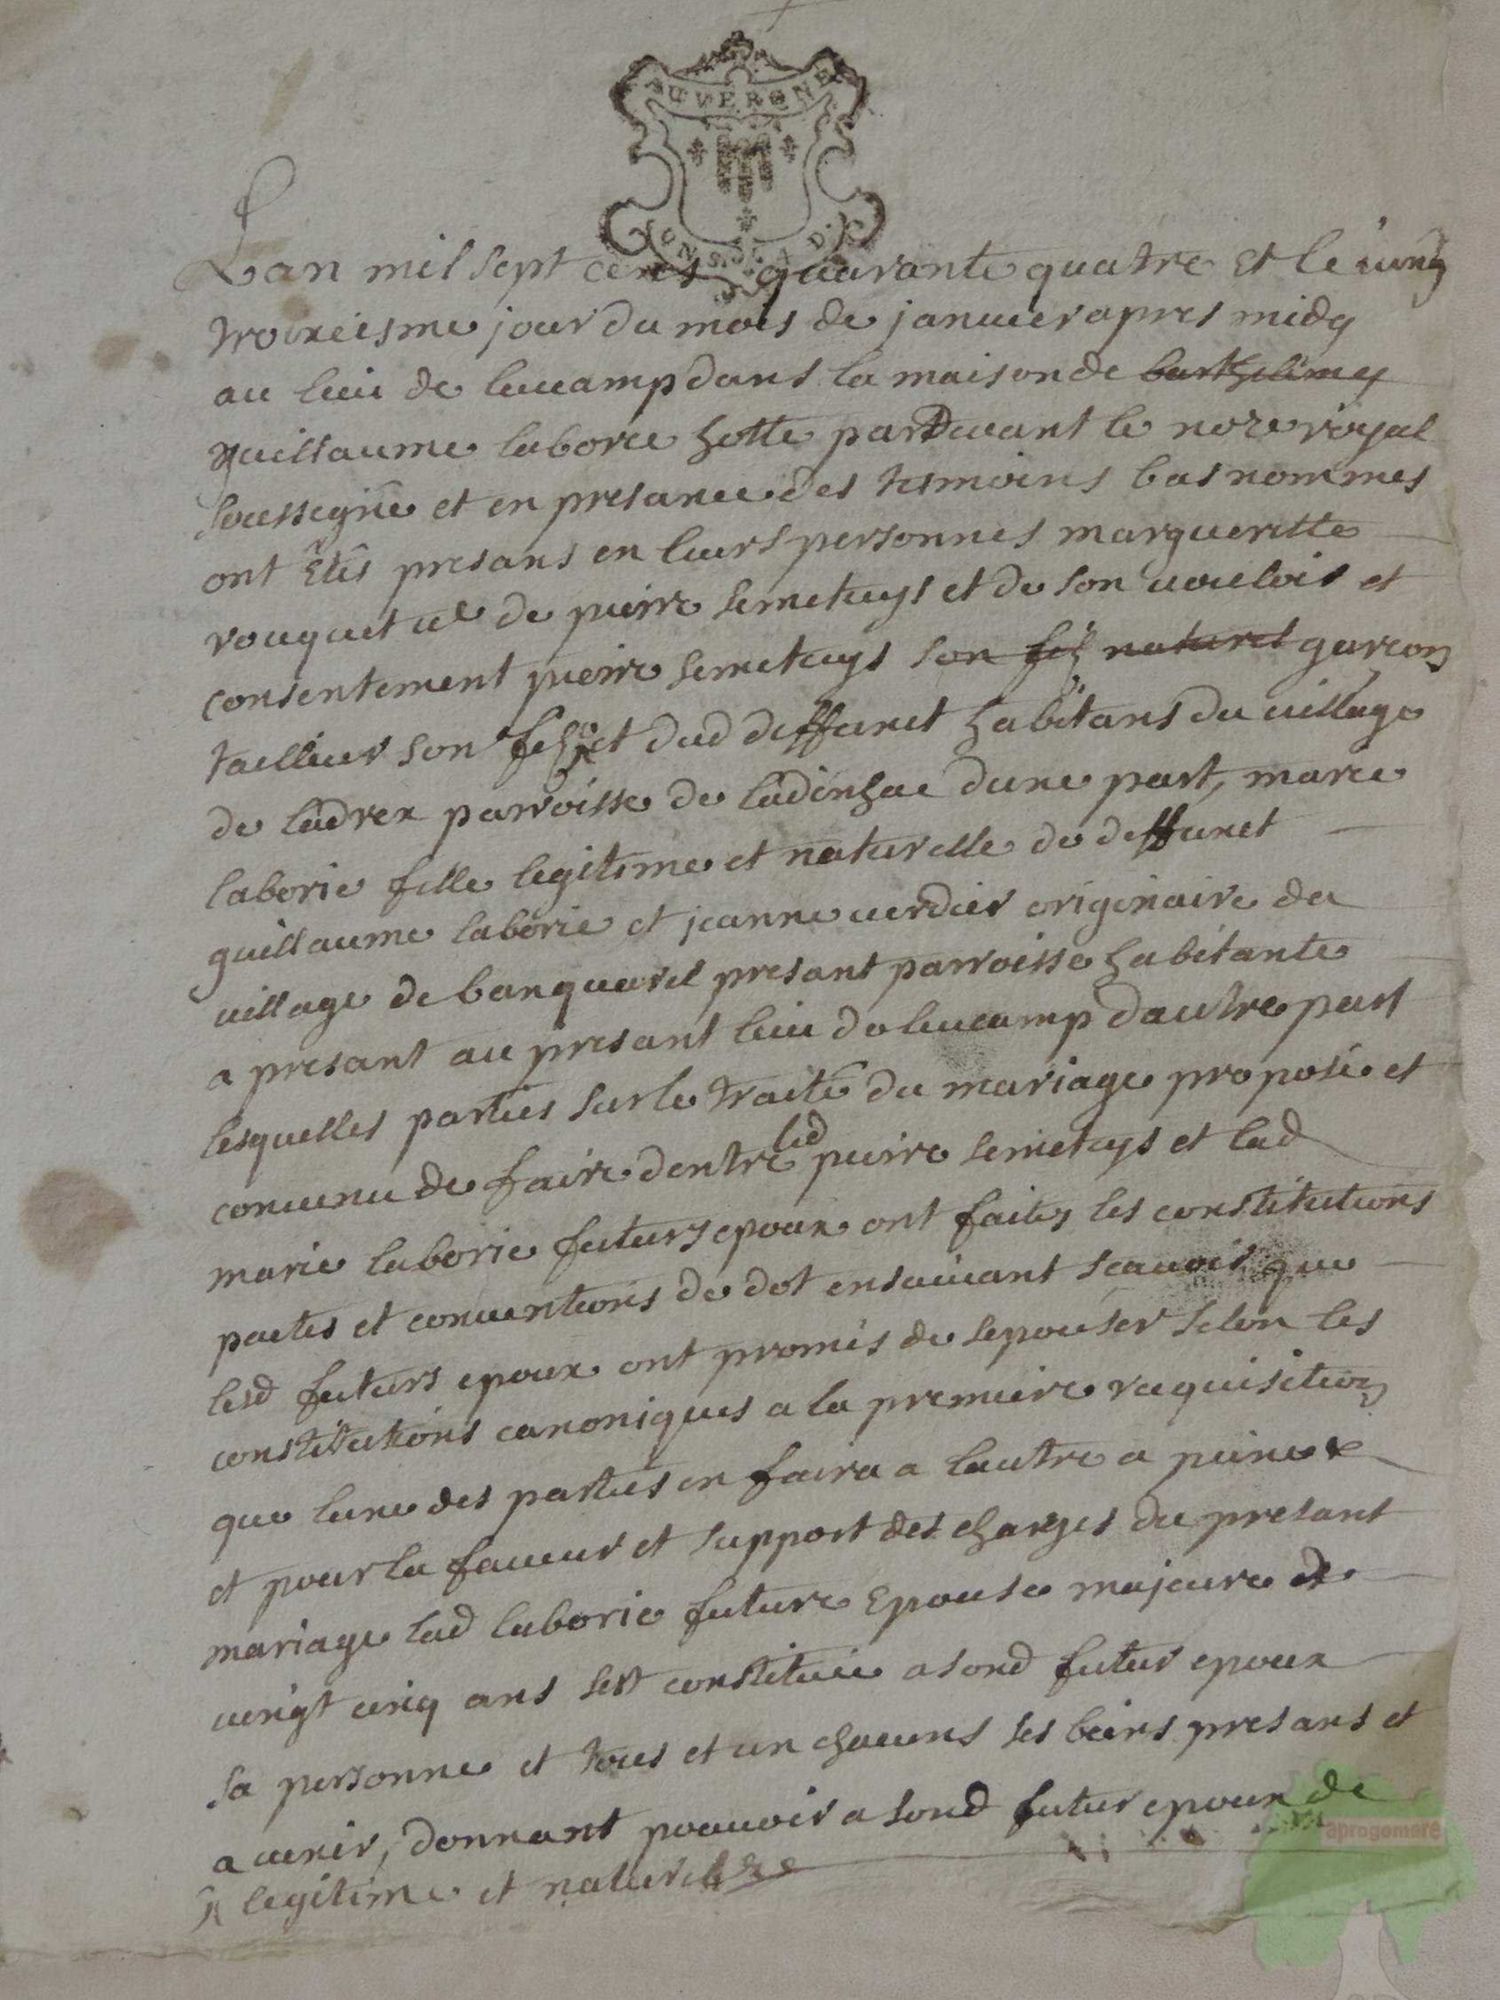 AUVERGNE
UN S. LA D.
Lan mil sept cens quarante quatre et le vingt
troixeisme jour du mois de janvier apres midy
au lieu de leucamp dans la maison de barthelimy
guillaume laborie hotte pardevant le nore royal
soussigne et en presance des tesmoins bas nommes
ont êtês presans en leurs personnes margueritte
rouquet de pierre semeteys et de son voulois et
consentement pierre semeteys son fils naturel garcon
tailleur son fils et dud deffunct habitans du village
de ladrex parroisse de ladinhac dune part, marie
laborie fille legitime et naturelle de deffunct
guillaume laborie et jeanne verdier originaire du
village de banquarel presant parroisse habitante
a presant au presant lieu de leucamp dautre part
lesquelles parties sur le traité du mariage proposé et
convenu de faire dentre led pierre semeteys et lad
marie laborie futurs epoux ont faites les constitutions
pactes et conventions de dot ensuivant scavoir que
lesd futurs epoux ont promis de sepouser selon les
constitutions canoniques a la premiere requisition
que lune des parties en faira a lautre a peine &
et pour la faveur et support des charges du presant
mariage lad laborie future Epouse majeure de
vingt cinq ans sest constituée a sond futur epoux
sa personne et tous et un chacuns ses beins presans et
avenir, donnant pouvoir a sond futur epoux de
legitime et naturel
aprogemere